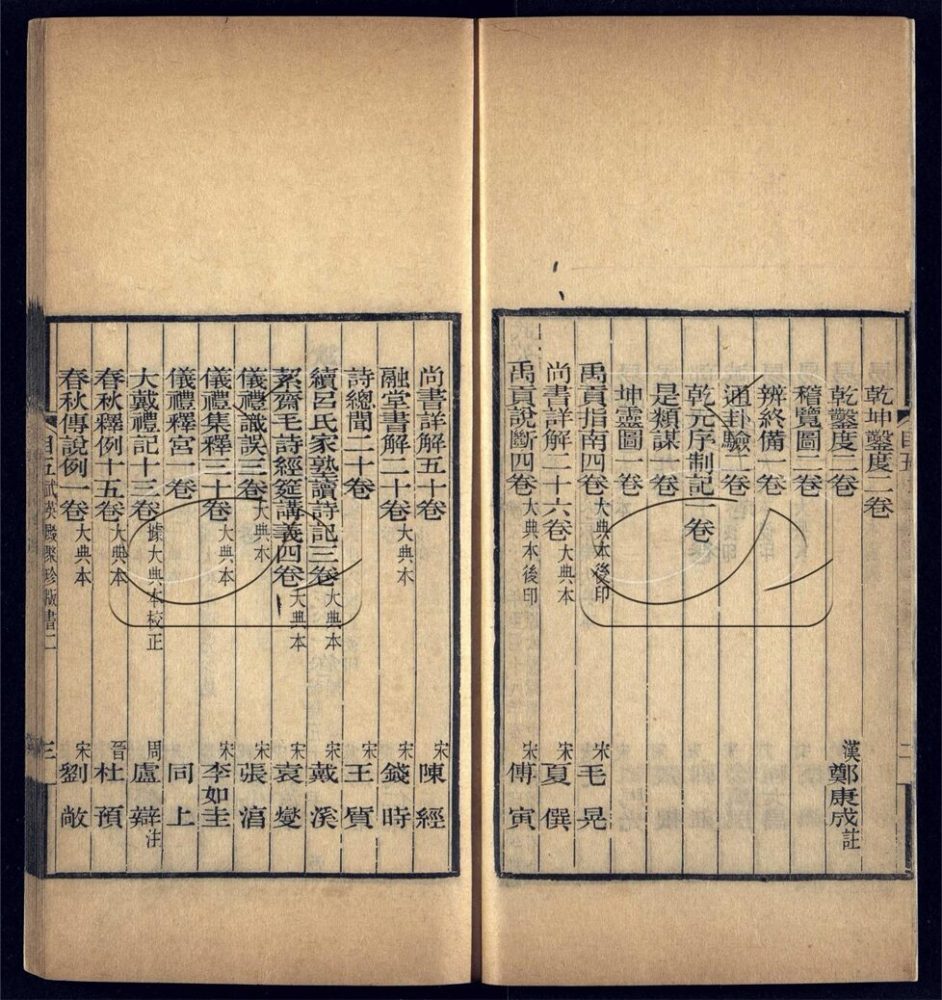 乾坤鑿度二卷
乾鑿度二卷 漢 鄭康成註
稽覽圖二卷
辨終備一卷
通卦驗二卷
乾元序制記一卷
是類謀一卷
坤靈圖一卷
禹貢指南四卷 大典本後印 宋 毛晃
尚書詳解二十六卷 大典本 宋 夏僎
禹貢說斷四卷 大典本後印 宋 傅寅
二
尚書詳解五十卷 宋 陳經
融堂書解二十卷 大典本 宋 錢時
詩總聞二十卷 宋 王質
續呂氏家塾讀詩記三卷 大典本 宋 戴溪
絜齋毛詩經筵講義四卷 大典本 宋 袁燮
儀禮識誤三卷 大典本 宋 張淳
儀禮集釋三十卷 大典本 宋 李如圭
儀禮釋宮一卷 同上
大戴禮記十三卷 據大典本校正 周 盧辯注
春秋釋例十五卷 大典本 晉 杜預
春秋傳說例一卷 大典本 宋 劉敞
目五 武英殿聚珍版書二 三